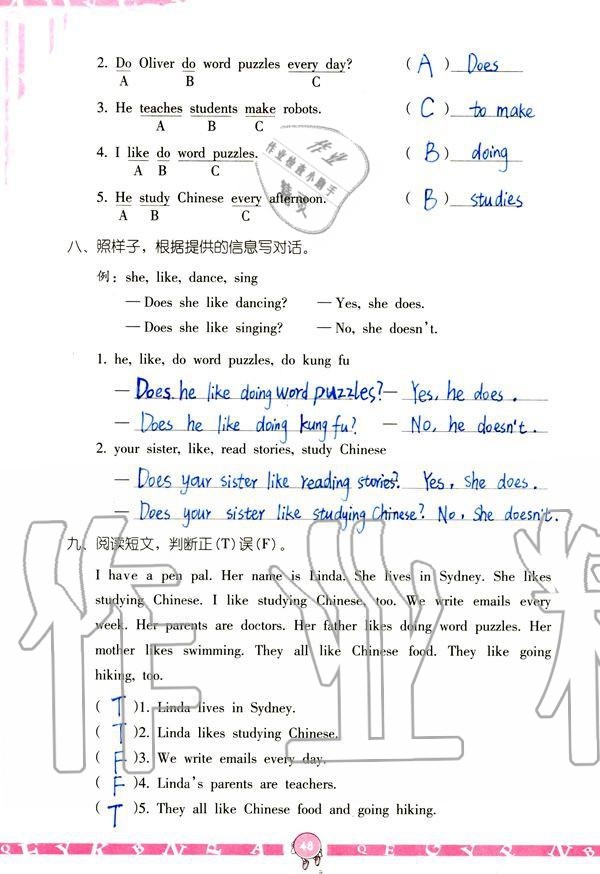 2. Do Oliver do word puzzles every day? ( A ) Does
A B C
3. He teaches students make robots. ( C ) to make
A B C
4. I like do word puzzles. ( B ) doing
A B C
5. He study Chinese every afternoon. ( B ) studies
A B C
八、照样子，根据提供的信息写对话。
例：she, like, dance, sing
— Does she like dancing? — Yes, she does.
— Does she like singing? — No, she doesn't.
1. he, like, do word puzzles, do kung fu
— Does he like doing word puzzles? — Yes, he does.
— Does he like doing kung fu? — No, he doesn't.
2. your sister, like, read stories, study Chinese
— Does your sister like reading stories? Yes, she does.
— Does your sister like studying Chinese? No, she doesn't.
九、阅读短文，判断正(T)误(F)。
I have a pen pal. Her name is Linda. She lives in Sydney. She likes
studying Chinese. I like studying Chinese, too. We write emails every
week. Her parents are doctors. Her father likes doing word puzzles. Her
mother likes swimming. They all like Chinese food. They like going
hiking, too.
( T )1. Linda lives in Sydney.
( T )2. Linda likes studying Chinese.
( F )3. We write emails every day.
( F )4. Linda's parents are teachers.
( T )5. They all like Chinese food and going hiking.
48